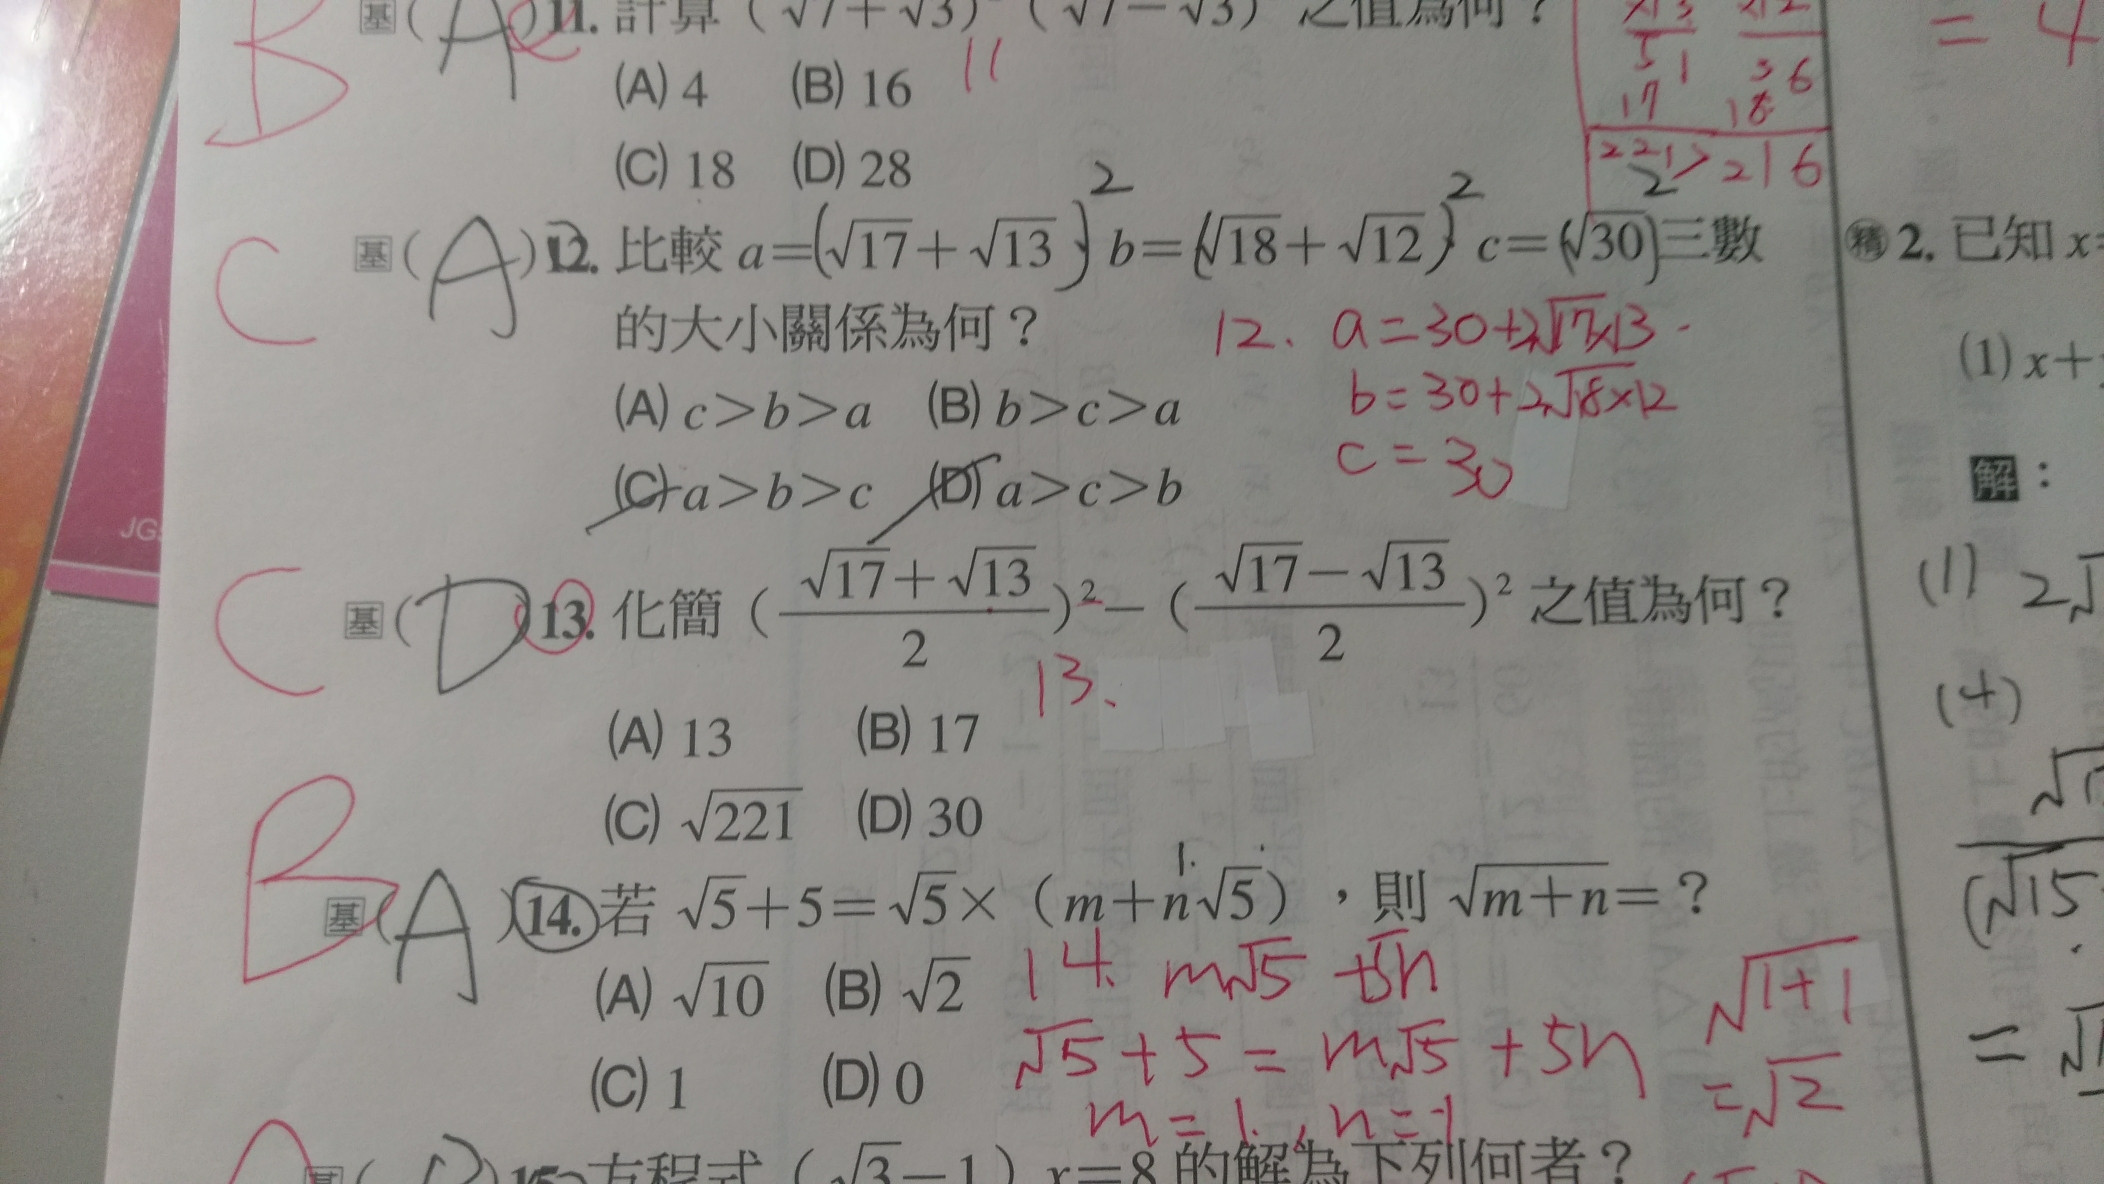 基(A)11. 計算(√7+√3) (√7−√3) 之值為何?
B
(A) 4 (B) 16
11
(C) 18 (D) 28
51 36
17 18
221>216
= 4
C
基(A)12. 比較 a=(√17+√13)² b=(√18+√12)² c=(√30)²三數
的大小關係為何?
(A) c>b>a (B) b>c>a
(C) a>b>c (D) a>c>b
12. a=30+2√17×13
b=30+2√18×12
c=30
C
基(D)13. 化簡 ((√17+√13)/2)²−((√17−√13)/2)² 之值為何?
13.
(A) 13 (B) 17
(C) √221 (D) 30
B
基(A)14. 若 √5+5=√5×(m+n√5),則 √m+n=?
1.
(A) √10 (B) √2
(C) 1 (D) 0
14. m√5 +5n
√5+5=m√5+5n
m=1. , n=1
√1+1
=√2
基( )15. 方程式(√3−1)x=8 的解為下列何者?
精 2. 已知 x=
(1) x+
解:
(1) 2√
(4)
(√15
= √1
JG